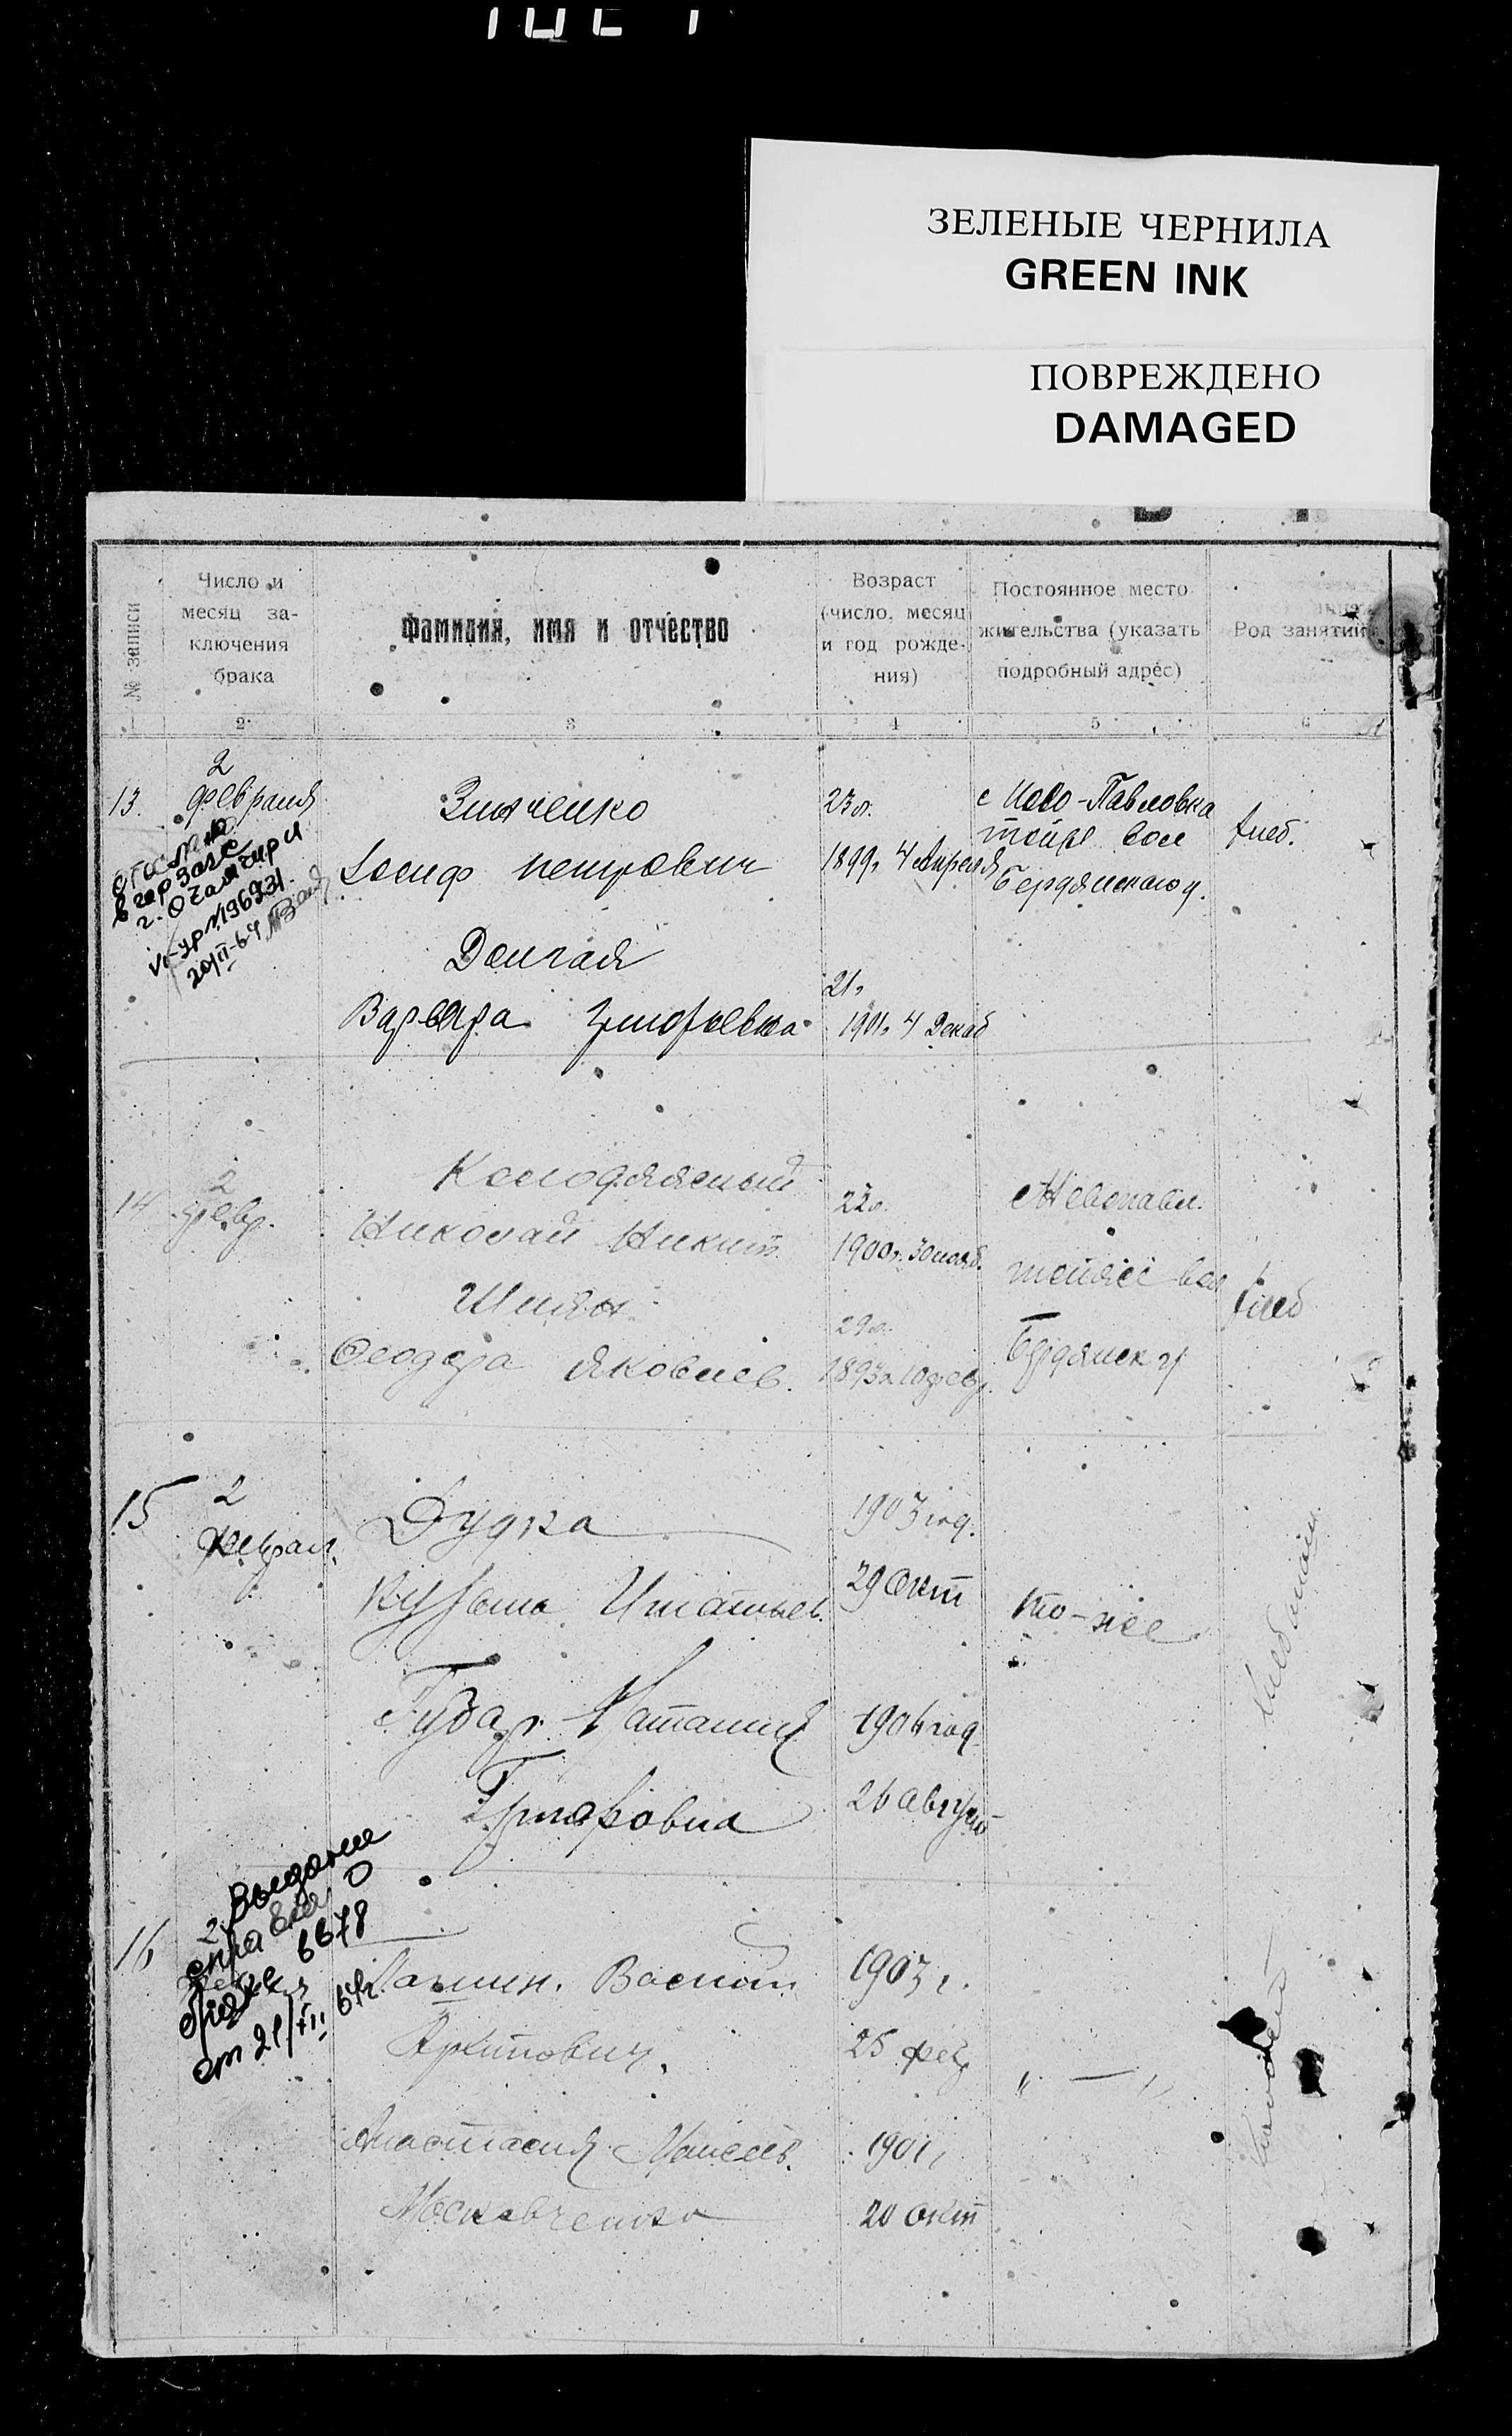 ЗЕЛЕНЫЕ ЧЕРНИЛА
GREEN INK
ПОВРЕЖДЕНО
DAMAGED
№ записи
Число и
месяц за-
ключения
брака
Фамилия, имя и отчество
Возраст
(число, месяц
и год рожде-
ния)
Постоянное место
жительства (указать
подробный адрес)
Род занятий
1 2 3 4 5 6
13.
2
февраля
в гор загс
г. Очамчири
Зинченко
Иосиф Петрович
23 л.
1899 г. 4 Апреля
с Ново-Павловка
тойже вол
Бердянского у.
хлеб.
20/II-64
Долгая
Варвара Григорьевна
21 г.
1901 г. 4 Декаб
14
2
февр.
Колодяжный
Николай Никит.
22 г.
1900 г. 30 нояб.
Новопавл.
тойже вол
Бердянск у
хлеб
Шиян
Феодора Яковлев.
29 л.
1893 г. 10 февр.
15
2
феврал.
Дудка
Кузьма Игнатьев.
1903 год.
29 Окт
то-же
Губарь Наталия
Григоровна
1904 год
26 август
16
2
Выдана
справка о
браке 6678
от 21/XII 64 г.
Василий
Архипович.
1903 г.
25 фев
" — "
Анастасия Моисеев.
Московченко
1901 г
20 окт